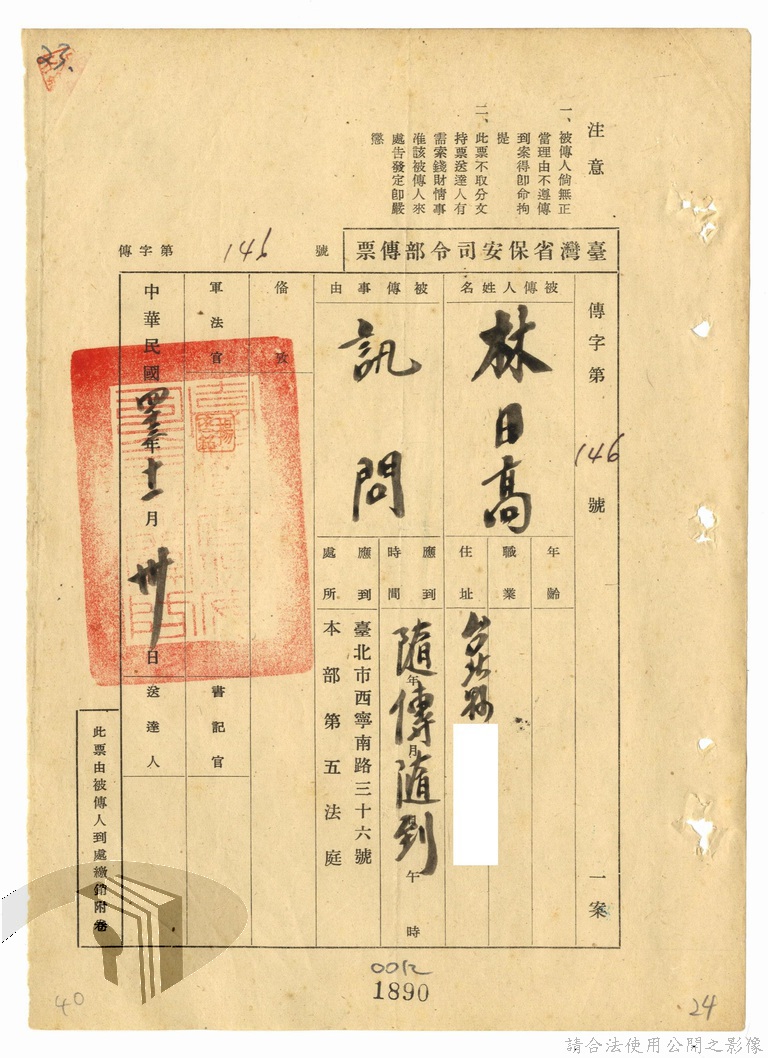 23.
注意
一、被傳人倘無正
當理由不遵傳
到案得卽命拘
提
二、此票不取分文
持票送達人有
需索錢財情事
准該被傳人來
處告發定卽嚴
懲
臺灣省保安司令部傳票
傳字第 146 號
傳字第 146 號 一案
被傳人姓名
林日高
年齡
職業
住址
台北縣
被傳事由
訊問
應到時間
年 月 午 時
隨傳隨到
應到處所
臺北市西寧南路三十六號
本部第五法庭
備攷
軍法官
楊
書記官
中華民國四十三年十一月卅日
送達人
此票由被傳人到處繳銷附卷
0012
1890
40
24
請合法使用公開之影像